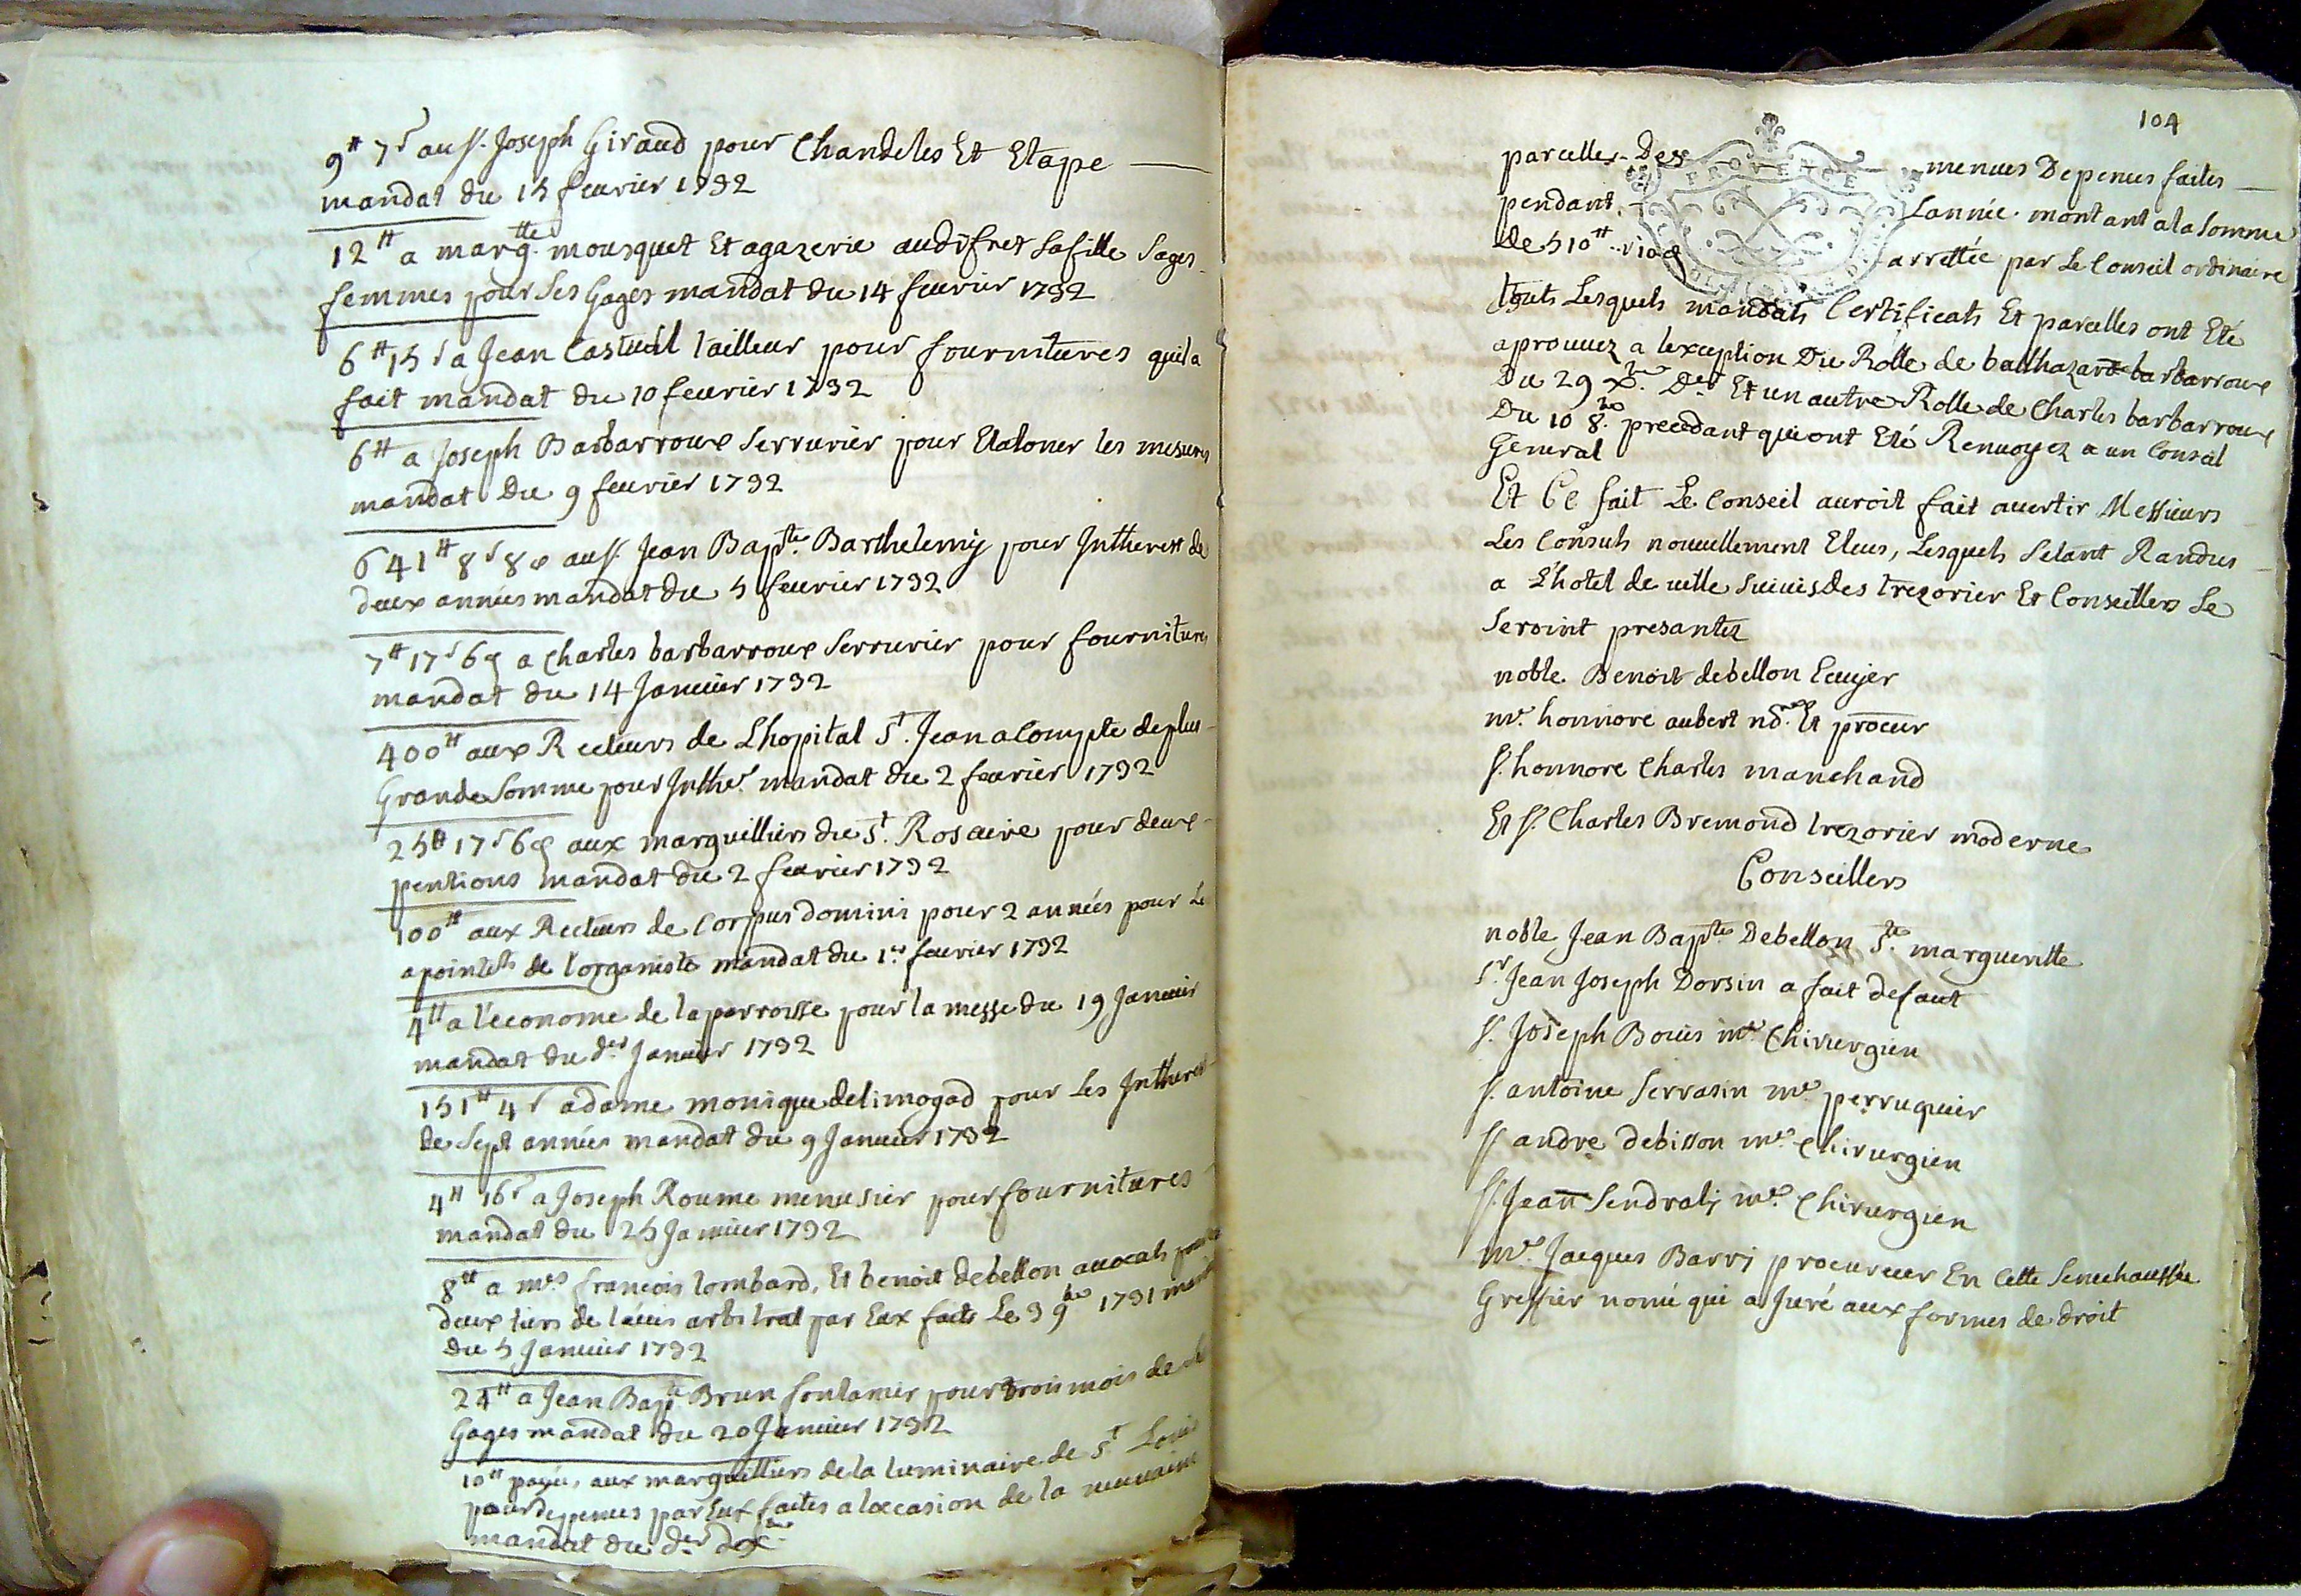 9# 7s au sr. Joseph Giraud pour Chandeles Et Etape
mandat du 15 feurier 1732
12# a margtte. mousquet Et agazerie audifret sa fille sages
femmes pour ses Gages mandat du 14 feurier 1732
6# 15s a Jean Castuel tailleur pour fournitures quil a
fait mandat du 10 feurier 1732
6# a Joseph Barbarroux Serrurier pour Etaloner les mesures
mandat du 9 feurier 1732
641# 8s 8d au sr. Jean Bapte. Barthelemy pour Intherest de
deux années mandat du 5 feurier 1732
7# 17s 6d a Charles barbarroux Serrurier pour fournitures
mandat du 14 Januier 1732
400# aux Recteurs de Lhopital St. Jean a Compte de plus
Grande Somme pour Inthet. mandat du 2 feurier 1732
25# 17s 6d aux marguilliers du St. Rosaire pour deux
pentions mandat du 2 feurier 1732
100# aux Recteurs de Corpus domini pour 2 années pour Les
apointets de l'organiste mandat du 1er feurier 1732
4# a l'econome de la parroisse pour la messe du 19 Januier
mandat du der Januier 1732
151# 4s a dame monique de limogad pour Les Intherest
de Sept années mandat du 9 Januier 1732
4# 16s a Joseph Roume menusier pour fournitures
mandat du 25 Januier 1732
8# a mes francois lombard, Et benoit debellon auocats pour les
deux tiers de l'auis arbitral par Eux faits Le 3 9bre 1731 mandat
du 5 Januier 1732
24# a Jean Bapte Brun fontanier pour trois mois de
Gages mandat du 20 Januier 1732
10# payés aux marguilliers de la luminaire de St Louis
pour depences par Eux faites a loccasion de la neuuaine
mandat du der dxbre
104
parcelles Des menues Depences faites
PROVENCE
pendant Lannée montant a la Somme
de 510# 10d arrettée par Le Conseil ordinaire
touts Lesquels mandats Certificats Et parcelles ont Eté
aprouuez a lexception Du Rolle de balthazard barbarroux
Du 29 xbre. Der Et un autre Rolle de Charles barbarroux
Du 10 8bre precedant qui ont Eté Renuoyez a un Conseil
General
Et Ce fait Le Conseil auroit fait auertir Messieurs
Les Consuls nouuellement Eleus, Lesquels S'etant Randus
a L'hotel de uille Suiuis des trezorier Et Conseillers Se
Seroint presantez
noble Benoit debellon Ecuyer
me. honnore aubert nore. Et procur
sr. honnore Charles marchand
Et sr. Charles Bremond trezorier moderne
Conseillers
noble Jean Bapte Debellon Ste. margueritte
sr. Jean Joseph Dorsin a fait defaut
sr. Joseph Bouis me Chirurgien
sr. antoine Serrasin me perruquier
sr andre debisson me Chirurgien
sr. Jean Sendraly me. Chirurgien
me. Jacques Barry procureur En Cette Senechaussée
Greffier nomé qui a Juré aux formes de droit